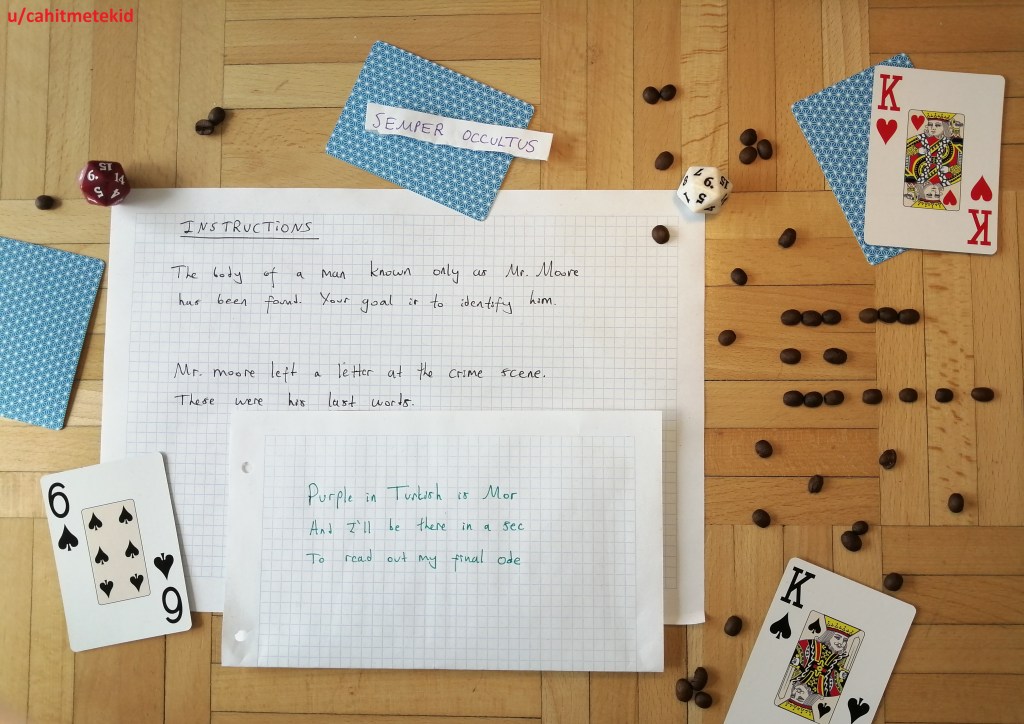 u/cahitmetekid
SEMPER OCCULTUS
K
K
15
6.
14
4
5
9.
7
15
5
1
INSTRUCTIONS
The body of a man known only as Mr. Moore
has been found. Your goal is to identify him.
Mr. moore left a letter at the crime scene.
These were his last words.
Purple in Turkish is Mor
And I'll be there in a sec
To read out my final ode
6
6
K